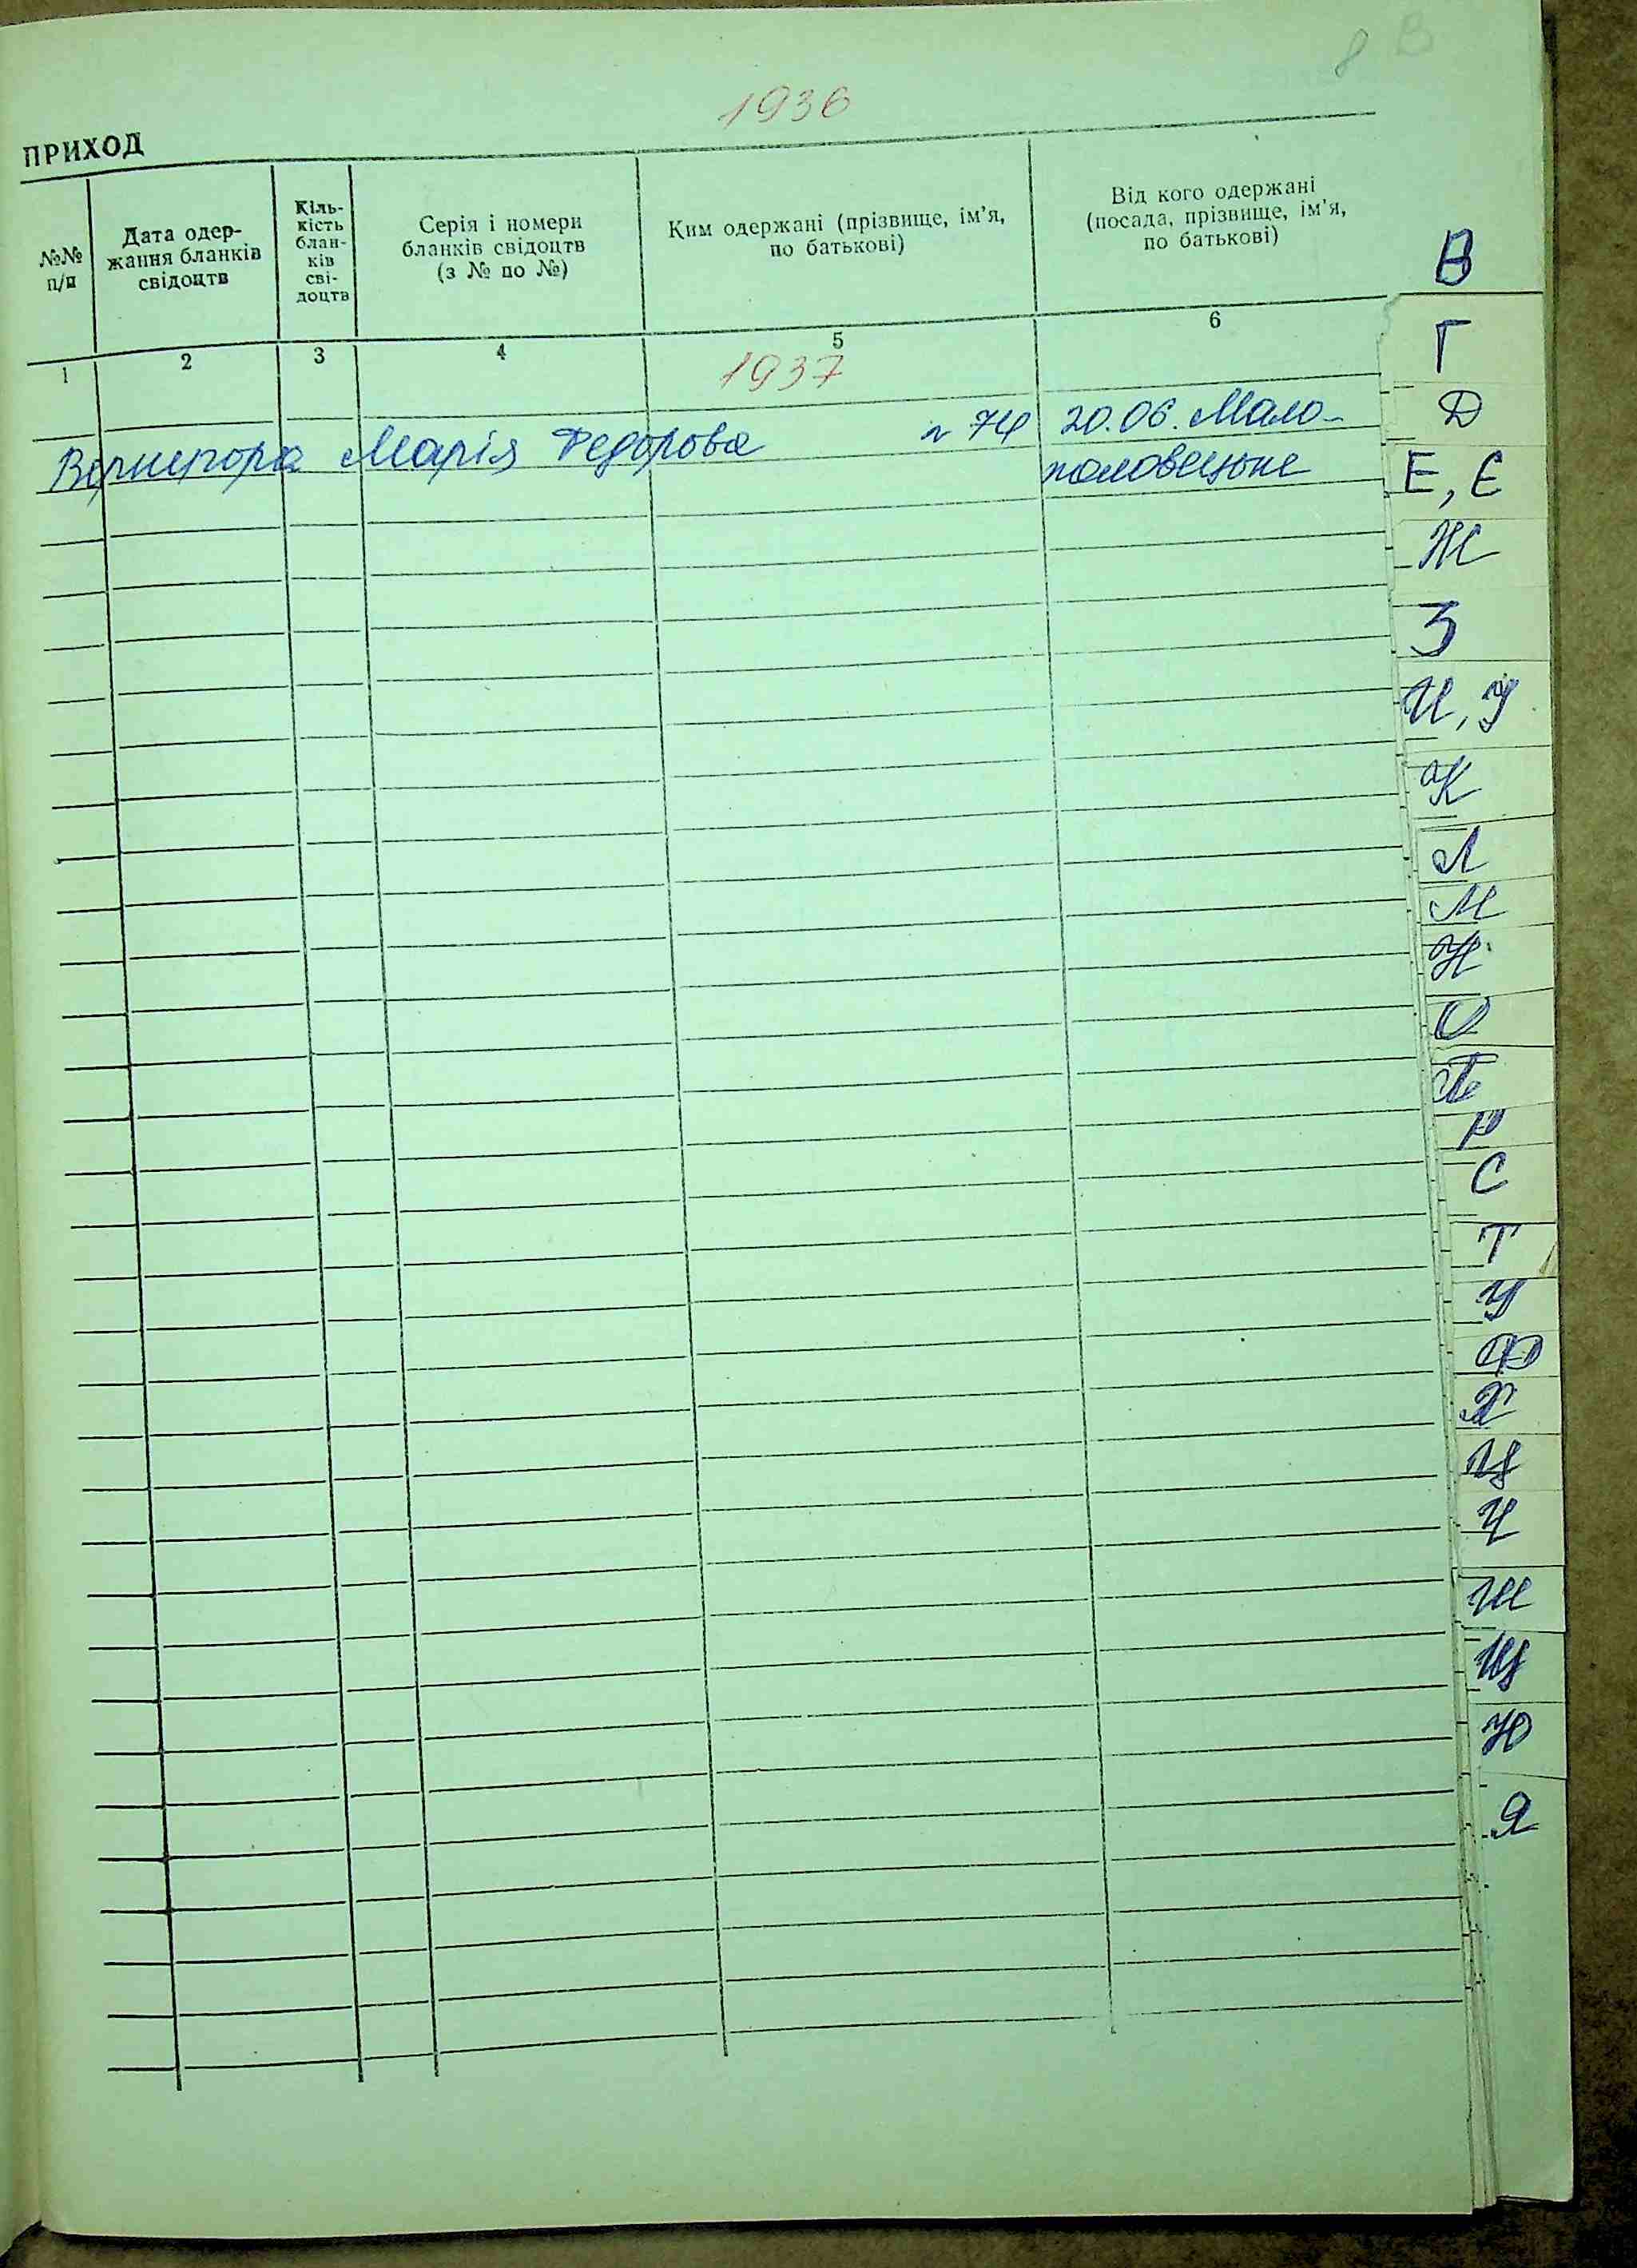 8 В
1936
ПРИХОД
№№ п/п
Дата одер-
жання бланків
свідоцтв
Кіль-
кість
блан-
ків
сві-
доцтв
Серія і номери
бланків свідоцтв
(з № по №)
Ким одержані (прізвище, ім’я,
по батькові)
Від кого одержані
(посада, прізвище, ім’я,
по батькові)
1 2 3 4 5 6
1937
Вернигора Марія Федорова 74 20.06. Мало-
половецьке
В
Г
Д
Е, Є
Ж
З
И, Й
К
Л
М
Н
О
П
Р
С
Т
У
Ф
Х
Ц
Ч
Ш
Щ
Ю
Я